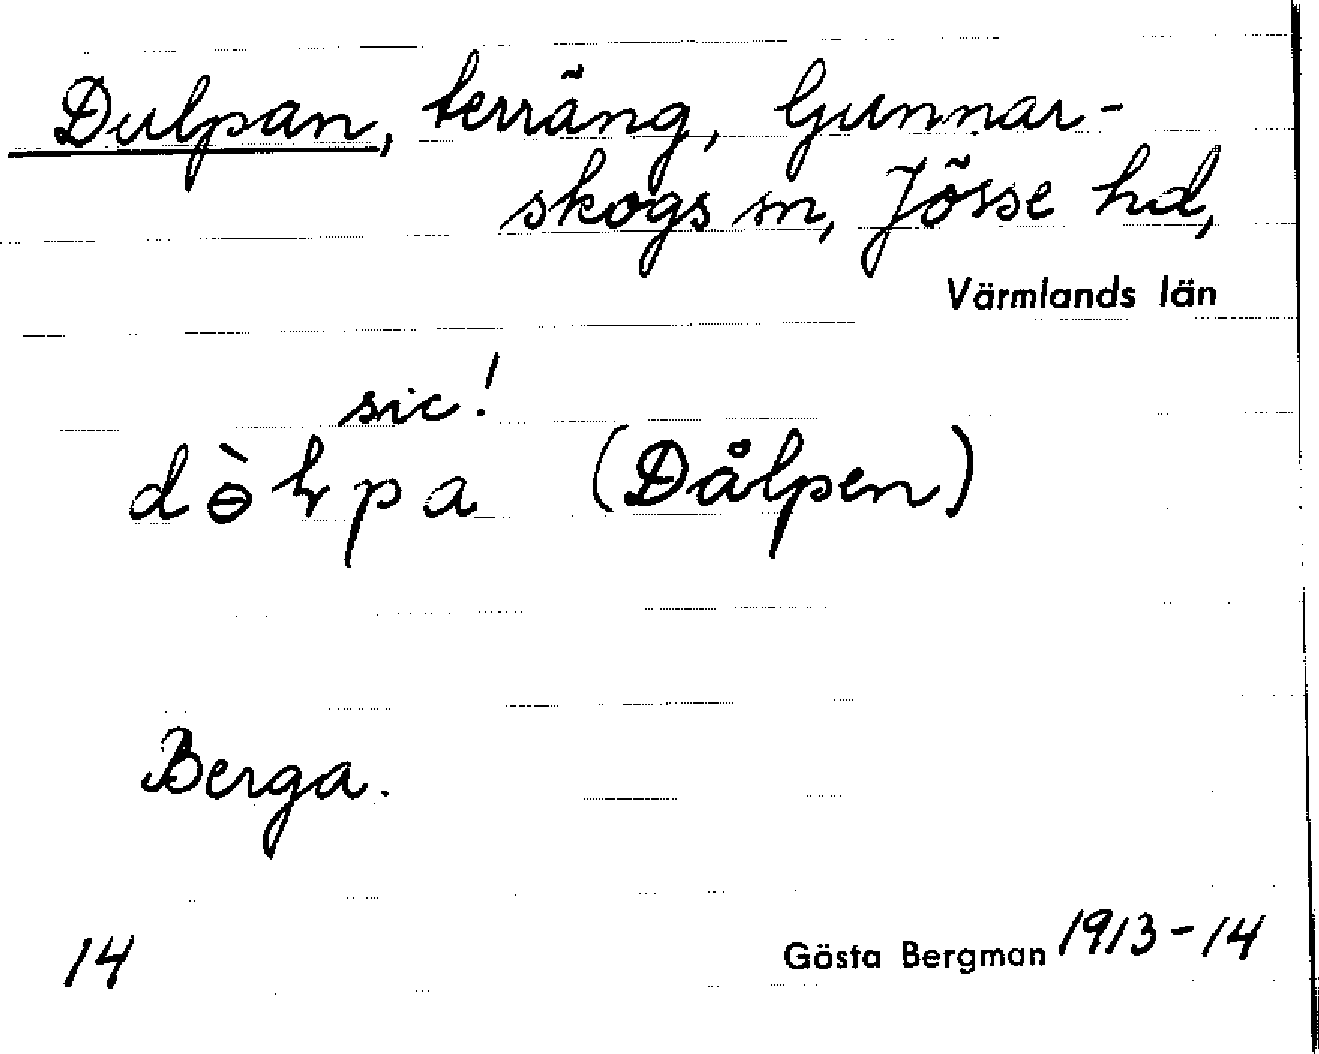 Dulpan, terräng, Gunnar-
skogs sn, Jösse hd,
Värmlands län
sic!
(Dålpen)
Berga.
14
Gösta Bergman 1913-14